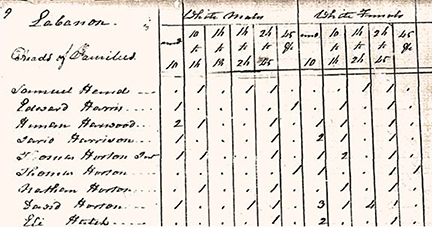 9 Lebanon. White Males White Females
und 10 16 16 26 45 und 10 16 26 45
Heads of Families. to to to to &c to to to &c
10 16 18 26 45 10 16 26 45
Samuel . 1 . 1 1 . . . 1 . 1
Edward Harris 1 . . . . 1 . . 1 . .
Harwood 2 1 . . 1 . . . . 1 .
David Harrison 1 . . . 1 . 2 . . 1 .
Thomas Horton Jur 1 1 . . 1 . 1 2 . 1 .
Thomas Horton . . . . . 1 . . . . 1
Nathan Horton . 1 . . 1 . . 1 . .
David Horton 1 . . . 1 . 3 1 4 . .
Eli Hatch . . . . 1 . 2 . 1 . .